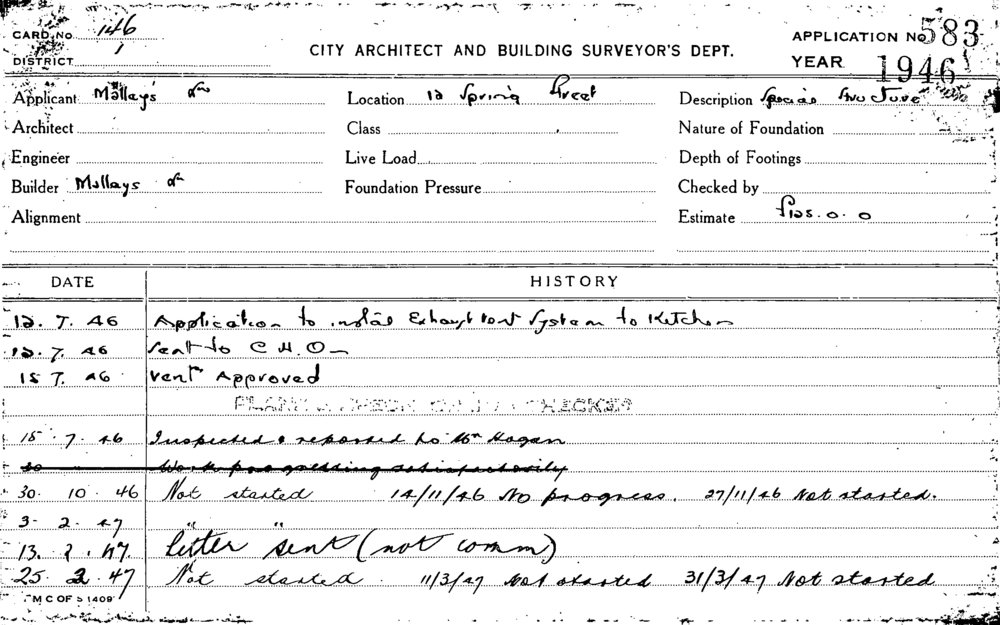 CARD No 146
1
DISTRICT
CITY ARCHITECT AND BUILDING SURVEYOR'S DEPT.
APPLICATION No 583
YEAR 1946
Applicant Mollays
Location 12 Spring Street
Description Special Structure
Architect
Class
Nature of Foundation
Engineer
Live Load
Depth of Footings
Builder Mollays
Foundation Pressure
Checked by
Alignment
Estimate £125.0.0
DATE HISTORY
12.7.46 Application to instal Exhaust Vent System to Kitchen
12.7.46 Sent to C.H.O
15 7.46 Vent Approved
15.7.46 Inspected & reported to Mr Hogan
30 Work progressing satisfactorily
30.10.46 Not started 14/11/46 No progress. 27/11/46 Not started.
3.2.47 " "
13.2.47. letter sent (not comm)
25.2.47 Not started 11/3/47 Not started 31/3/47 Not started
M C OF S 1409